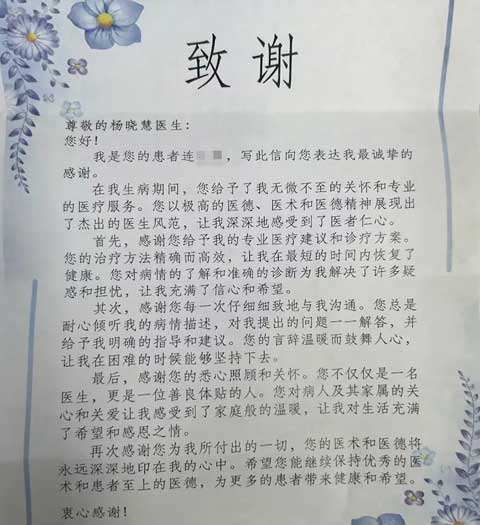 致谢
尊敬的杨晓慧医生：
您好！
我是您的患者连，写此信向您表达我最诚挚的
感谢。
在我生病期间，您给予了我无微不至的关怀和专业
的医疗服务。您以极高的医德、医术和医德精神展现出
了杰出的医生风范，让我深深地感受到了医者仁心。
首先，感谢您给予我的专业医疗建议和诊疗方案。
您的治疗方法精确而高效，让我在最短的时间内恢复了
健康。您对病情的了解和准确的诊断为我解决了许多疑
惑和担忧，让我充满了信心和希望。
其次，感谢您每一次仔细细致地与我沟通。您总是
耐心倾听我的病情描述，对我提出的问题一一解答，并
给予我明确的指导和建议。您的言辞温暖而鼓舞人心，
让我在困难的时候能够坚持下去。
最后，感谢您的悉心照顾和关怀。您不仅仅是一名
医生，更是一位善良体贴的人。您对病人及其家属的关
心和关爱让我感受到了家庭般的温暖，让我对生活充满
了希望和感恩之情。
再次感谢您为我所付出的一切，您的医术和医德将
永远深深地印在我的心中。希望您能继续保持优秀的医
术和患者至上的医德，为更多的患者带来健康和希望。
衷心感谢！